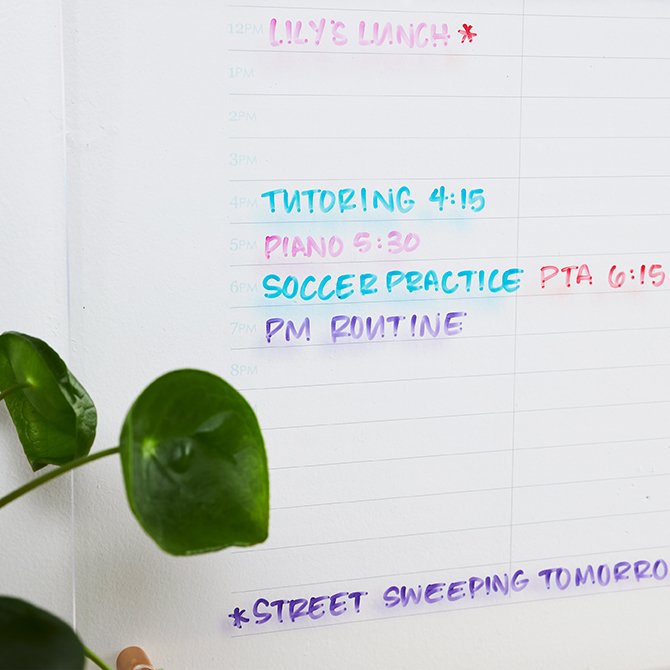 12PM LILY'S LUNCH *
1PM
2PM
3PM
4PM TUTORING 4:15
5PM PIANO 5:30
6PM SOCCER PRACTICE PTA 6:15
7PM PM ROUTINE
8PM
*STREET SWEEPING TOMORRO